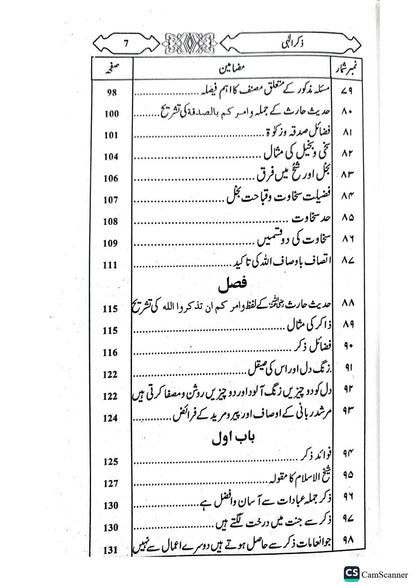 ذکر الٰہی 7
نمبر شمار مضامین صفحہ
۷۹ مسئلہ مذکور کے متعلق مصنف کا اہم فیصلہ 98
۸۰ حدیث حارث کے جملہ وامر کم بالصدقة کی تشریح 100
۸۱ فضائل صدقہ و زکوٰۃ 101
۸۲ سخی و بخیل کی مثال 104
۸۳ بخل اور شُح میں فرق 106
۸۴ فضیلت سخاوت و قباحت بخل 107
۸۵ حد سخاوت 108
۸۶ سخاوت کی دو قسمیں 109
۸۷ اتصاف باوصاف اللہ کی تاکید 111
فصل
۸۸ حدیث حارث ﷺ کے لفظ وامر کم ان تذکروا الله کی تشریح 115
۸۹ ذاکر کی مثال 115
۹۰ فضائل ذکر 116
۹۱ زنگ دل اور اس کی صیقل 122
۹۲ دل کو دو چیزیں زنگ آلود اور دو چیزیں روشن و مصفا کرتی ہیں 122
۹۳ مرشد ربانی کے اوصاف اور پیر و مرید کے فرائض 124
باب اول
۹۴ فوائد ذکر 125
۹۵ شیخ الاسلام کا مقولہ 127
۹۶ ذکر جملہ عبادات سے آسان و افضل ہے 130
۹۷ ذکر سے جنت میں درخت لگتے ہیں 130
۹۸ جو انعامات ذکر سے حاصل ہوتے ہیں دوسرے اعمال سے نہیں 131
CS CamScanner